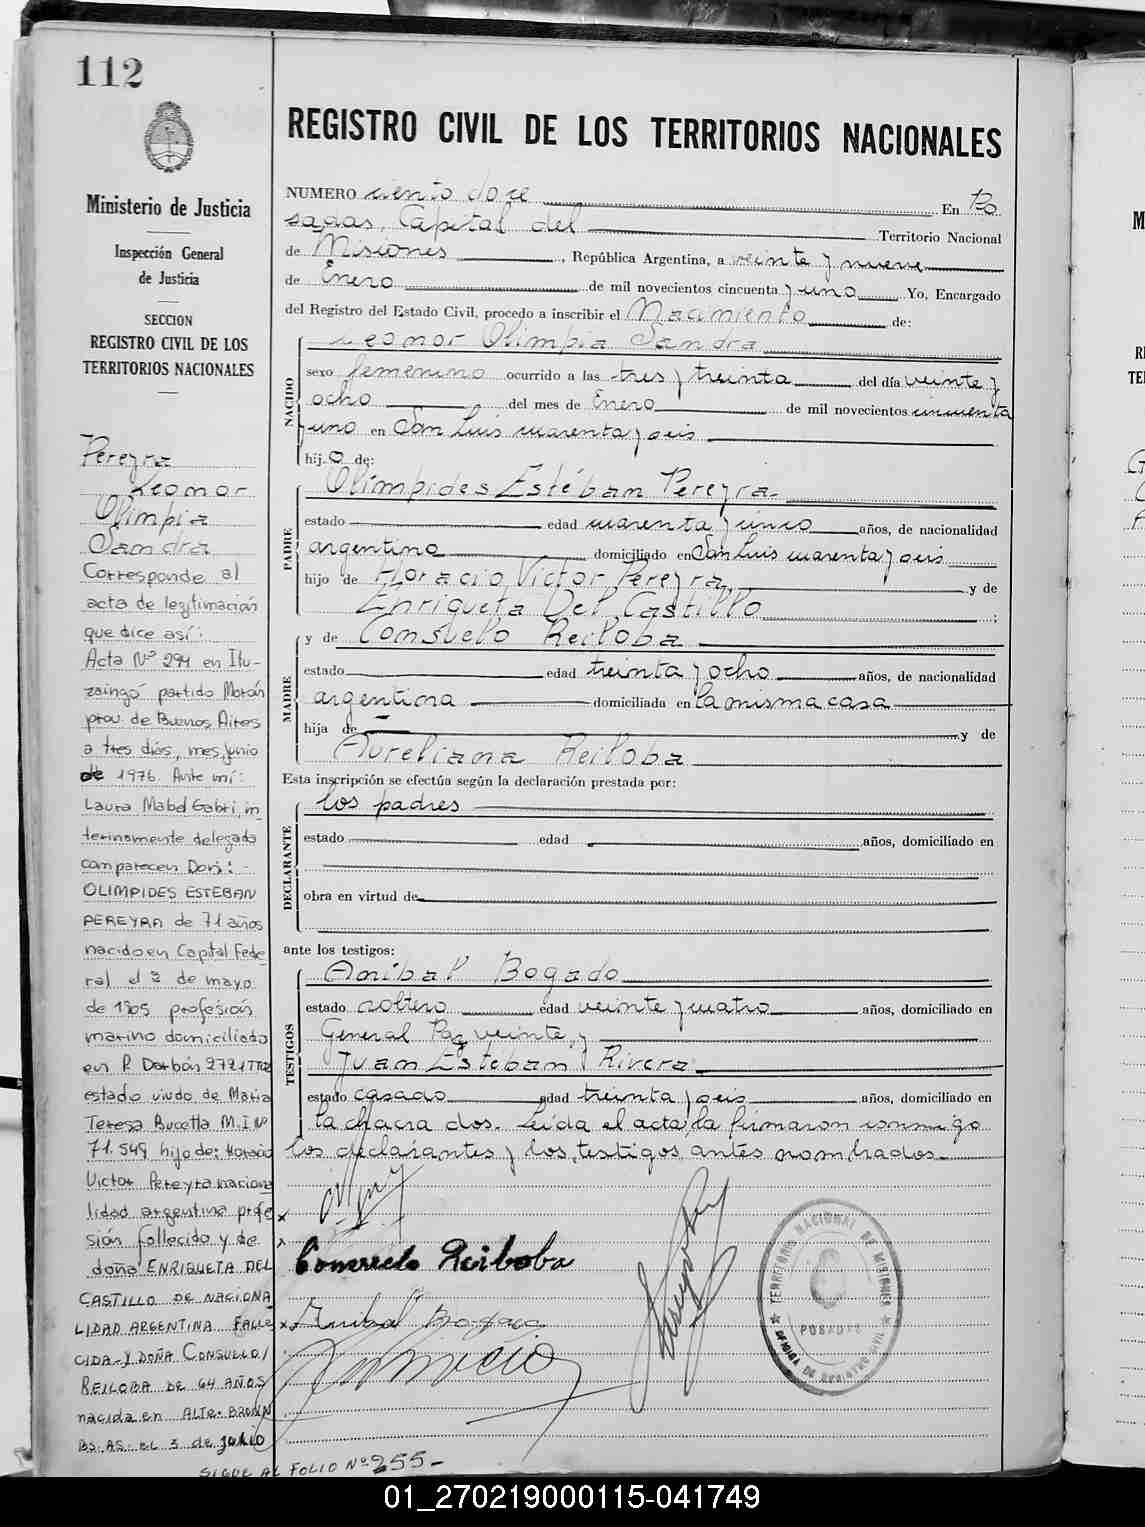 112
Ministerio de Justicia
Inspección General
de Justicia
SECCION
REGISTRO CIVIL DE LOS
TERRITORIOS NACIONALES
Pereyra
Leonor
Olimpia
Sandra
Corresponde al
acta de legitimación
que dice así:
Acta Nº 294 en Itu-
zaingó partido Morón
prov. de Buenos Aires
a tres días, mes, junio
de 1976. Ante mí:
Laura Mabel Gabri, in
terinamente delegada
comparecen Don:
OLIMPIDES ESTEBAN
PEREYRA de 71 años
nacido en Capital Fede
ral el 3 de mayo
de 1905 profesión
marino domiciliado
en P. Darbón 2721 TTZO
estado viudo de María
Teresa Bucetta M.I Nº
71.549 hijo de: Horacio
Victor Pereyra naciona
lidad argentina profe
sión fallecido y de
doña ENRIQUETA DEL
CASTILLO DE NACIONA
LIDAD ARGENTINA FALLE
CIDA-Y DOÑA CONSUELO
REILOBA DE 64 AÑOS
nacida en ALTE. BROWN
BS. AS. EL 3 de JULIO
SIGUE AL FOLIO Nº 255-
REGISTRO CIVIL DE LOS TERRITORIOS NACIONALES
NUMERO ciento doce En Po
sadas, Capital del Territorio Nacional
de Misiones, República Argentina, a veinte y nueve
de Enero de mil novecientos cincuenta y uno Yo, Encargado
del Registro del Estado Civil, procedo a inscribir el Nacimiento de:
NACIDO
Leonor Olimpia Sandra
sexo femenino ocurrido a las tres y treinta del día veinte y
ocho del mes de Enero de mil novecientos cincuenta
y uno en San Luis cuarenta y seis
hij a de:
PADRE
Olimpides Estéban Pereyra.
estado edad cuarenta y cinco años, de nacionalidad
argentino domiciliado en San Luis cuarenta y seis
hijo de Horacio Victor Pereyra y de
Enriqueta Del Castillo;
MADRE
y de Consuelo Reiloba
estado edad treinta y ocho años, de nacionalidad
argentina domiciliada en la misma casa
hija de y de
Aureliana Reiloba
Esta inscripción se efectúa según la declaración prestada por:
DECLARANTE
los padres
estado edad años, domiciliado en
obra en virtud de
ante los testigos:
TESTIGOS
Anibal Bogado
estado soltero edad veinte y cuatro años, domiciliado en
General Paz veinte, y
Juan Estéban Rivera
estado casado edad treinta y seis años, domiciliado en
la chacra dos. Leída el acta, la firmaron conmigo
los declarantes y los testigos antes nombrados.
x
x Consuelo Reiloba
x Anibal Bogado
TERRITORIO NACIONAL DE MISIONES
POSADAS
OFICINA DE REGISTRO CIVIL
01_270219000115-041749